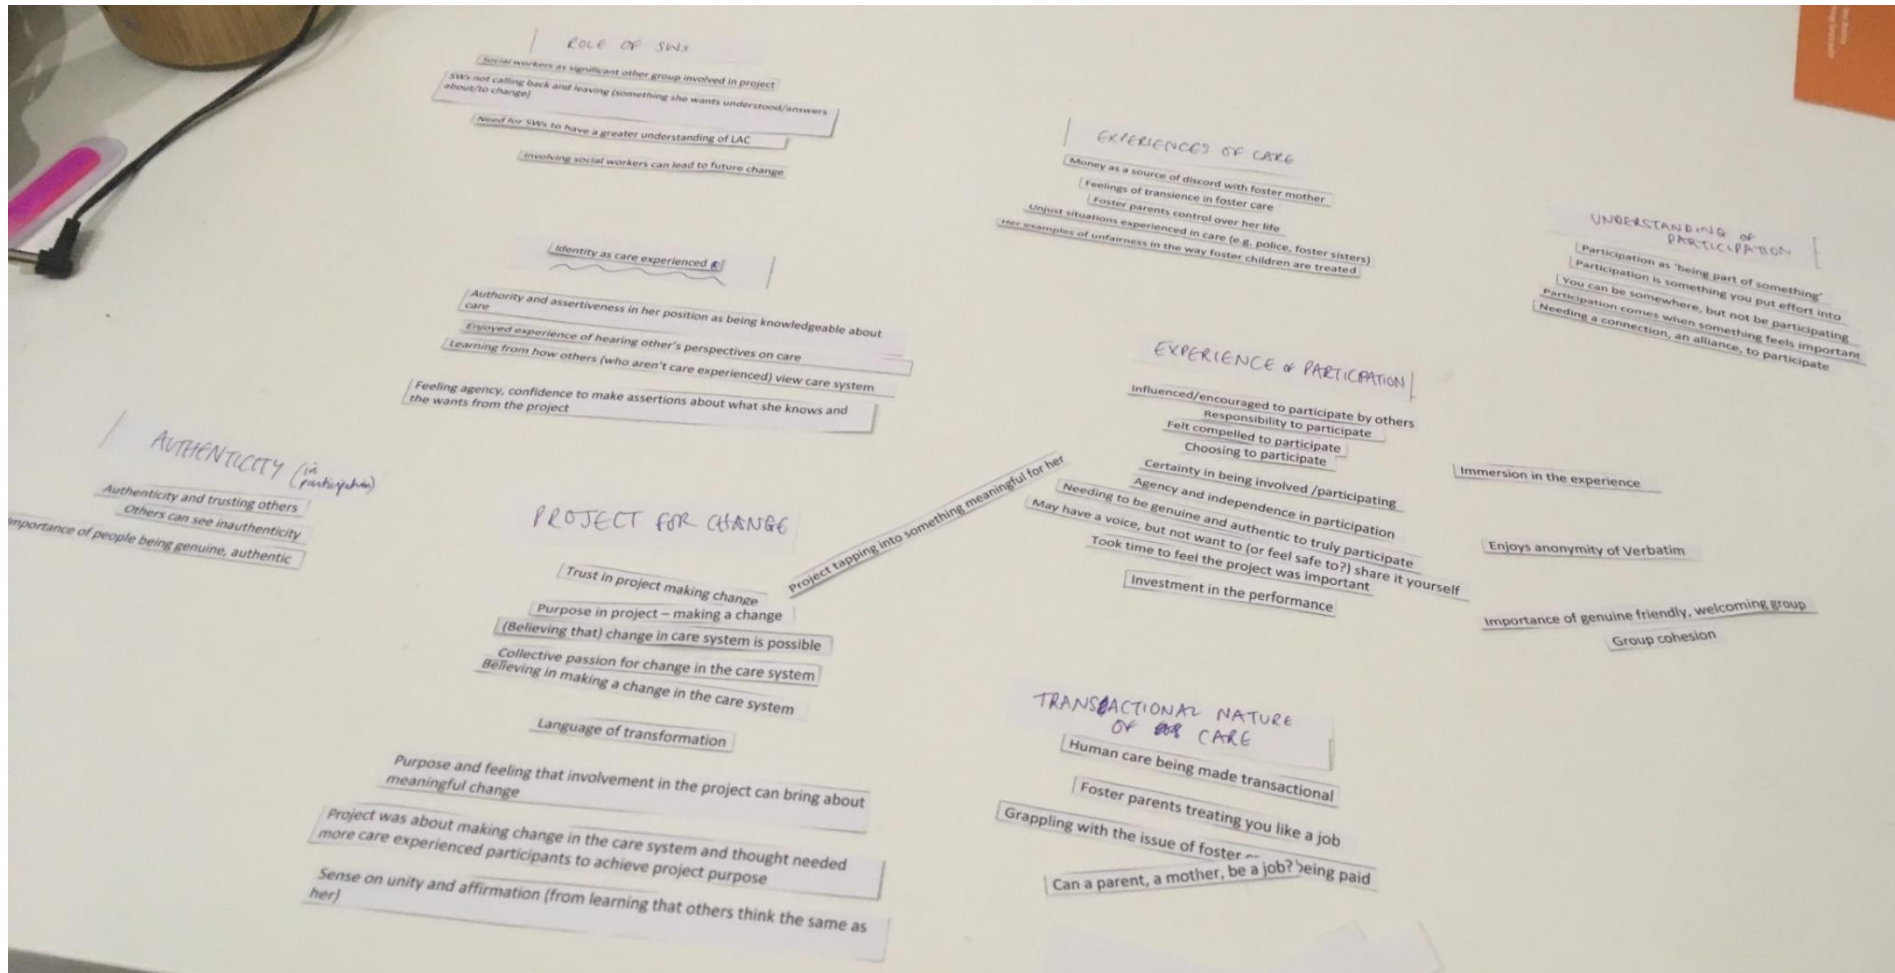 ROLE OF SWs
Social workers as significant other group involved in project
SWs not calling back and leaving (something she wants understood/answers
about/to change)
Need for SWs to have a greater understanding of LAC
Involving social workers can lead to future change
Identity as care experienced
Authority and assertiveness in her position as being knowledgeable about
care
Enjoyed experience of hearing other's perspectives on care
Learning from how others (who aren't care experienced) view care system
Feeling agency, confidence to make assertions about what she knows and
the wants from the project
AUTHENTICITY (in
participation)
Authenticity and trusting others
Others can see inauthenticity
importance of people being genuine, authentic
PROJECT FOR CHANGE
Trust in project making change
Purpose in project – making a change
(Believing that) change in care system is possible
Collective passion for change in the care system
Believing in making a change in the care system
Language of transformation
Purpose and feeling that involvement in the project can bring about
meaningful change
Project was about making change in the care system and thought needed
more care experienced participants to achieve project purpose
Sense on unity and affirmation (from learning that others think the same as
her)
Project tapping into something meaningful for her
EXPERIENCES OF CARE
Money as a source of discord with foster mother
Feelings of transience in foster care
Foster parents control over her life
Unjust situations experienced in care (e.g. police, foster sisters)
Her examples of unfairness in the way foster children are treated
EXPERIENCE OF PARTICIPATION
Influenced/encouraged to participate by others
Responsibility to participate
Felt compelled to participate
Choosing to participate
Certainty in being involved /participating
Agency and independence in participation
Needing to be genuine and authentic to truly participate
May have a voice, but not want to (or feel safe to?) share it yourself
Took time to feel the project was important
Investment in the performance
Immersion in the experience
Enjoys anonymity of Verbatim
Importance of genuine friendly, welcoming group
Group cohesion
TRANSACTIONAL NATURE
OF CARE
Human care being made transactional
Foster parents treating you like a job
Grappling with the issue of foster
being paid
Can a parent, a mother, be a job?
UNDERSTANDING OF
PARTICIPATION
Participation as 'being part of something'
Participation is something you put effort into
You can be somewhere, but not be participating
Participation comes when something feels important
Needing a connection, an alliance, to participate